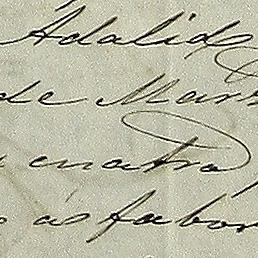 Adalid
de Mar
cuatro
as fabor